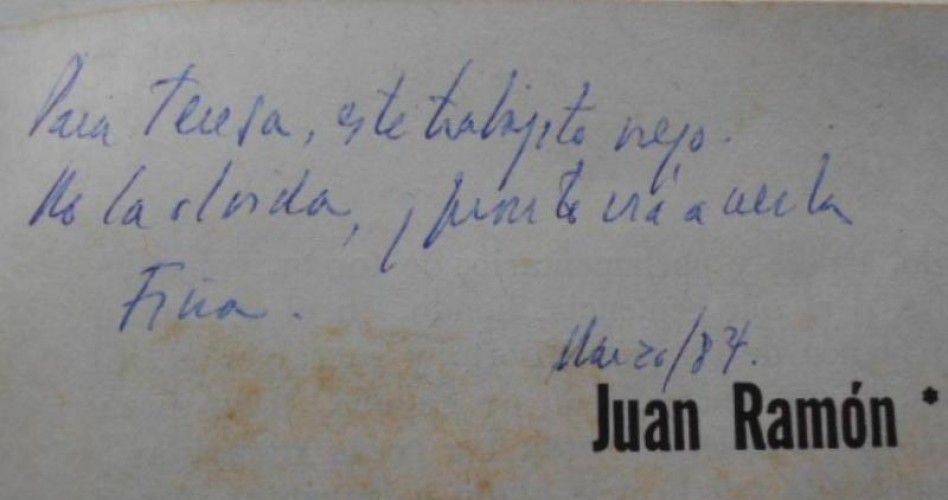 Para Teresa, este trabajito viejo.
No la olvida, y pronto irá a verla
Fina.
Marzo/84.
Juan Ramón *